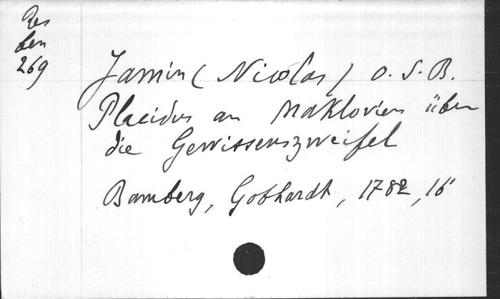 Res
ben
269
Jamin (Nicolas) O.S.B.
Placidus an Maklovien über
die Gewissenszweifel
Bamberg, Gobhardt, 1782, 16°